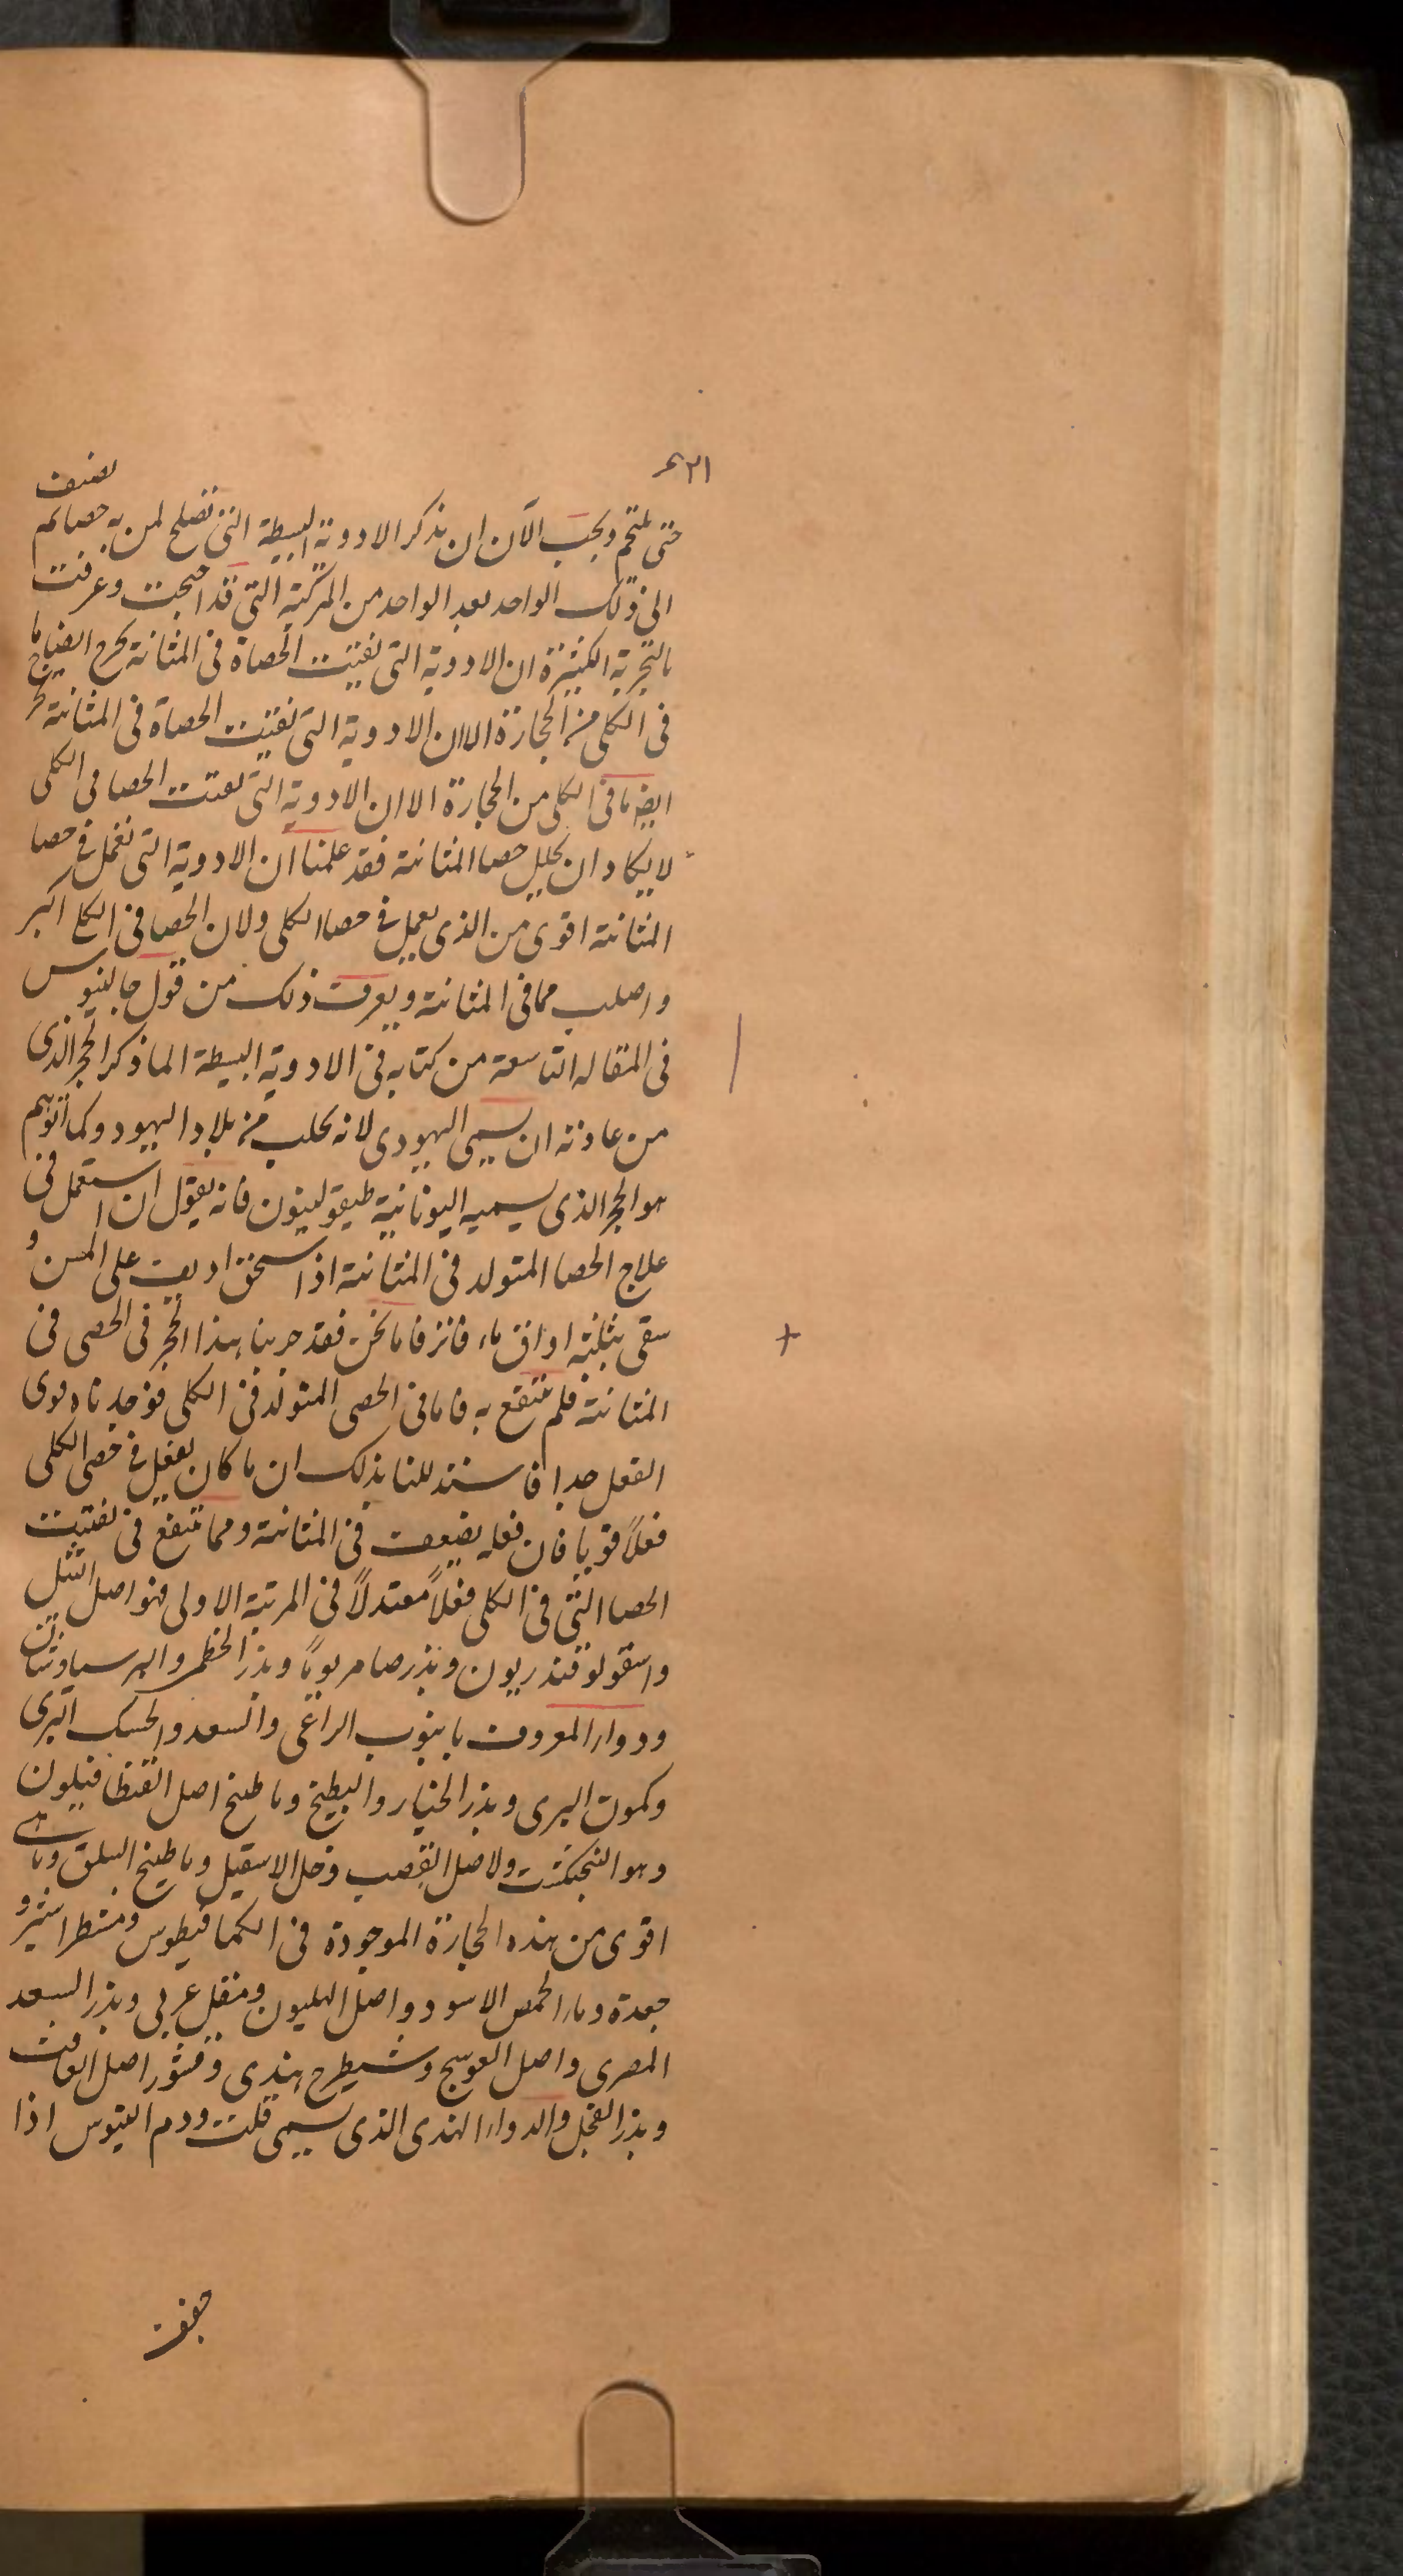 ٢١ء
حتى يلتحم ويجب الآن ان نذكر الادوية البسيطة التى تصلح لمن به حصا ثم نضيف
الى ذلك الواحد بعد الواحد من المركبة التى قد امتحنت وعرفت
بالتجربة الكثيرة ان الادوية التى تفتت الحصاة فى المثانة تخرج ايضا ما
فى الكلى من الحجارة الا ان الادوية التى تفتت الحصاة فى المثانة تخر
ايضا ما فى الكلى من الحجارة الا ان الادوية التى تفتت الحصا فى الكلى
لا يكاد ان يحلل حصا المثانة فقد علمنا ان الادوية التى تعمل فى حصا
المثانة اقوى من الذى يعمل فى حصا الكلى ولان الحصا فى الكلى اكبر
واصلب مما فى المثانة ويعرف ذلك من قول جالينوس
فى المقاله التاسعة من كتابه فى الادوية البسيطة الما ذكر الحجر الذى
من عادته ان يسمى اليهودى لانه يجلب من بلاد اليهود وكما اتوهم
هو الحجر الذى يسميه اليونانية طيقوليثون فانه يقول ان استعمل فى
علاج الحصا المتولد فى المثانة اذا سحق او ديف على المسن و
سقى بثلثة اواق ماء فاتر فاما نحن فقد جربنا هذا الحجر فى الحصى فى
المثانة فلم ننتفع به فاما فى الحصى المتولد فى الكلى فوجدناه قوى
الفعل جدا فاستدللنا بذلك ان ما كان يفعل فى حصى الكلى
فعلاً قويا فان فعله يضعف فى المثانة ومما ينتفع فى تفتيت
الحصا التى فى الكلى فعلاً معتدلاً فى المرتبة الاولى فهو اصل الثيل
واسقولوقندريون وبذر صامريوما وبذر الخطمى والبرسياوشان
ودواء المعروف بانبوب الراعى والسعد والحسك البرى
وكمون البرى وبذر الخيار والبطيخ وما طبخ اصل القنطافيلون
وهو البنجنكشت ولاصل القصب وخل الاسقيل وما طبيخ السلق وما هى
اقوى من هذه الحجارة الموجودة فى الكمافيطوس ومشطرامشير و
جعدة وماء الحمص الاسود واصل الهليون ومقل عربى وبذر السعد
المصرى واصل العوسج وشيطرج هندى وقشور اصل الغافث
وبذر الفجل والدواء الهندى الذى يسمى قلت ودم التيوس اذا
جفف